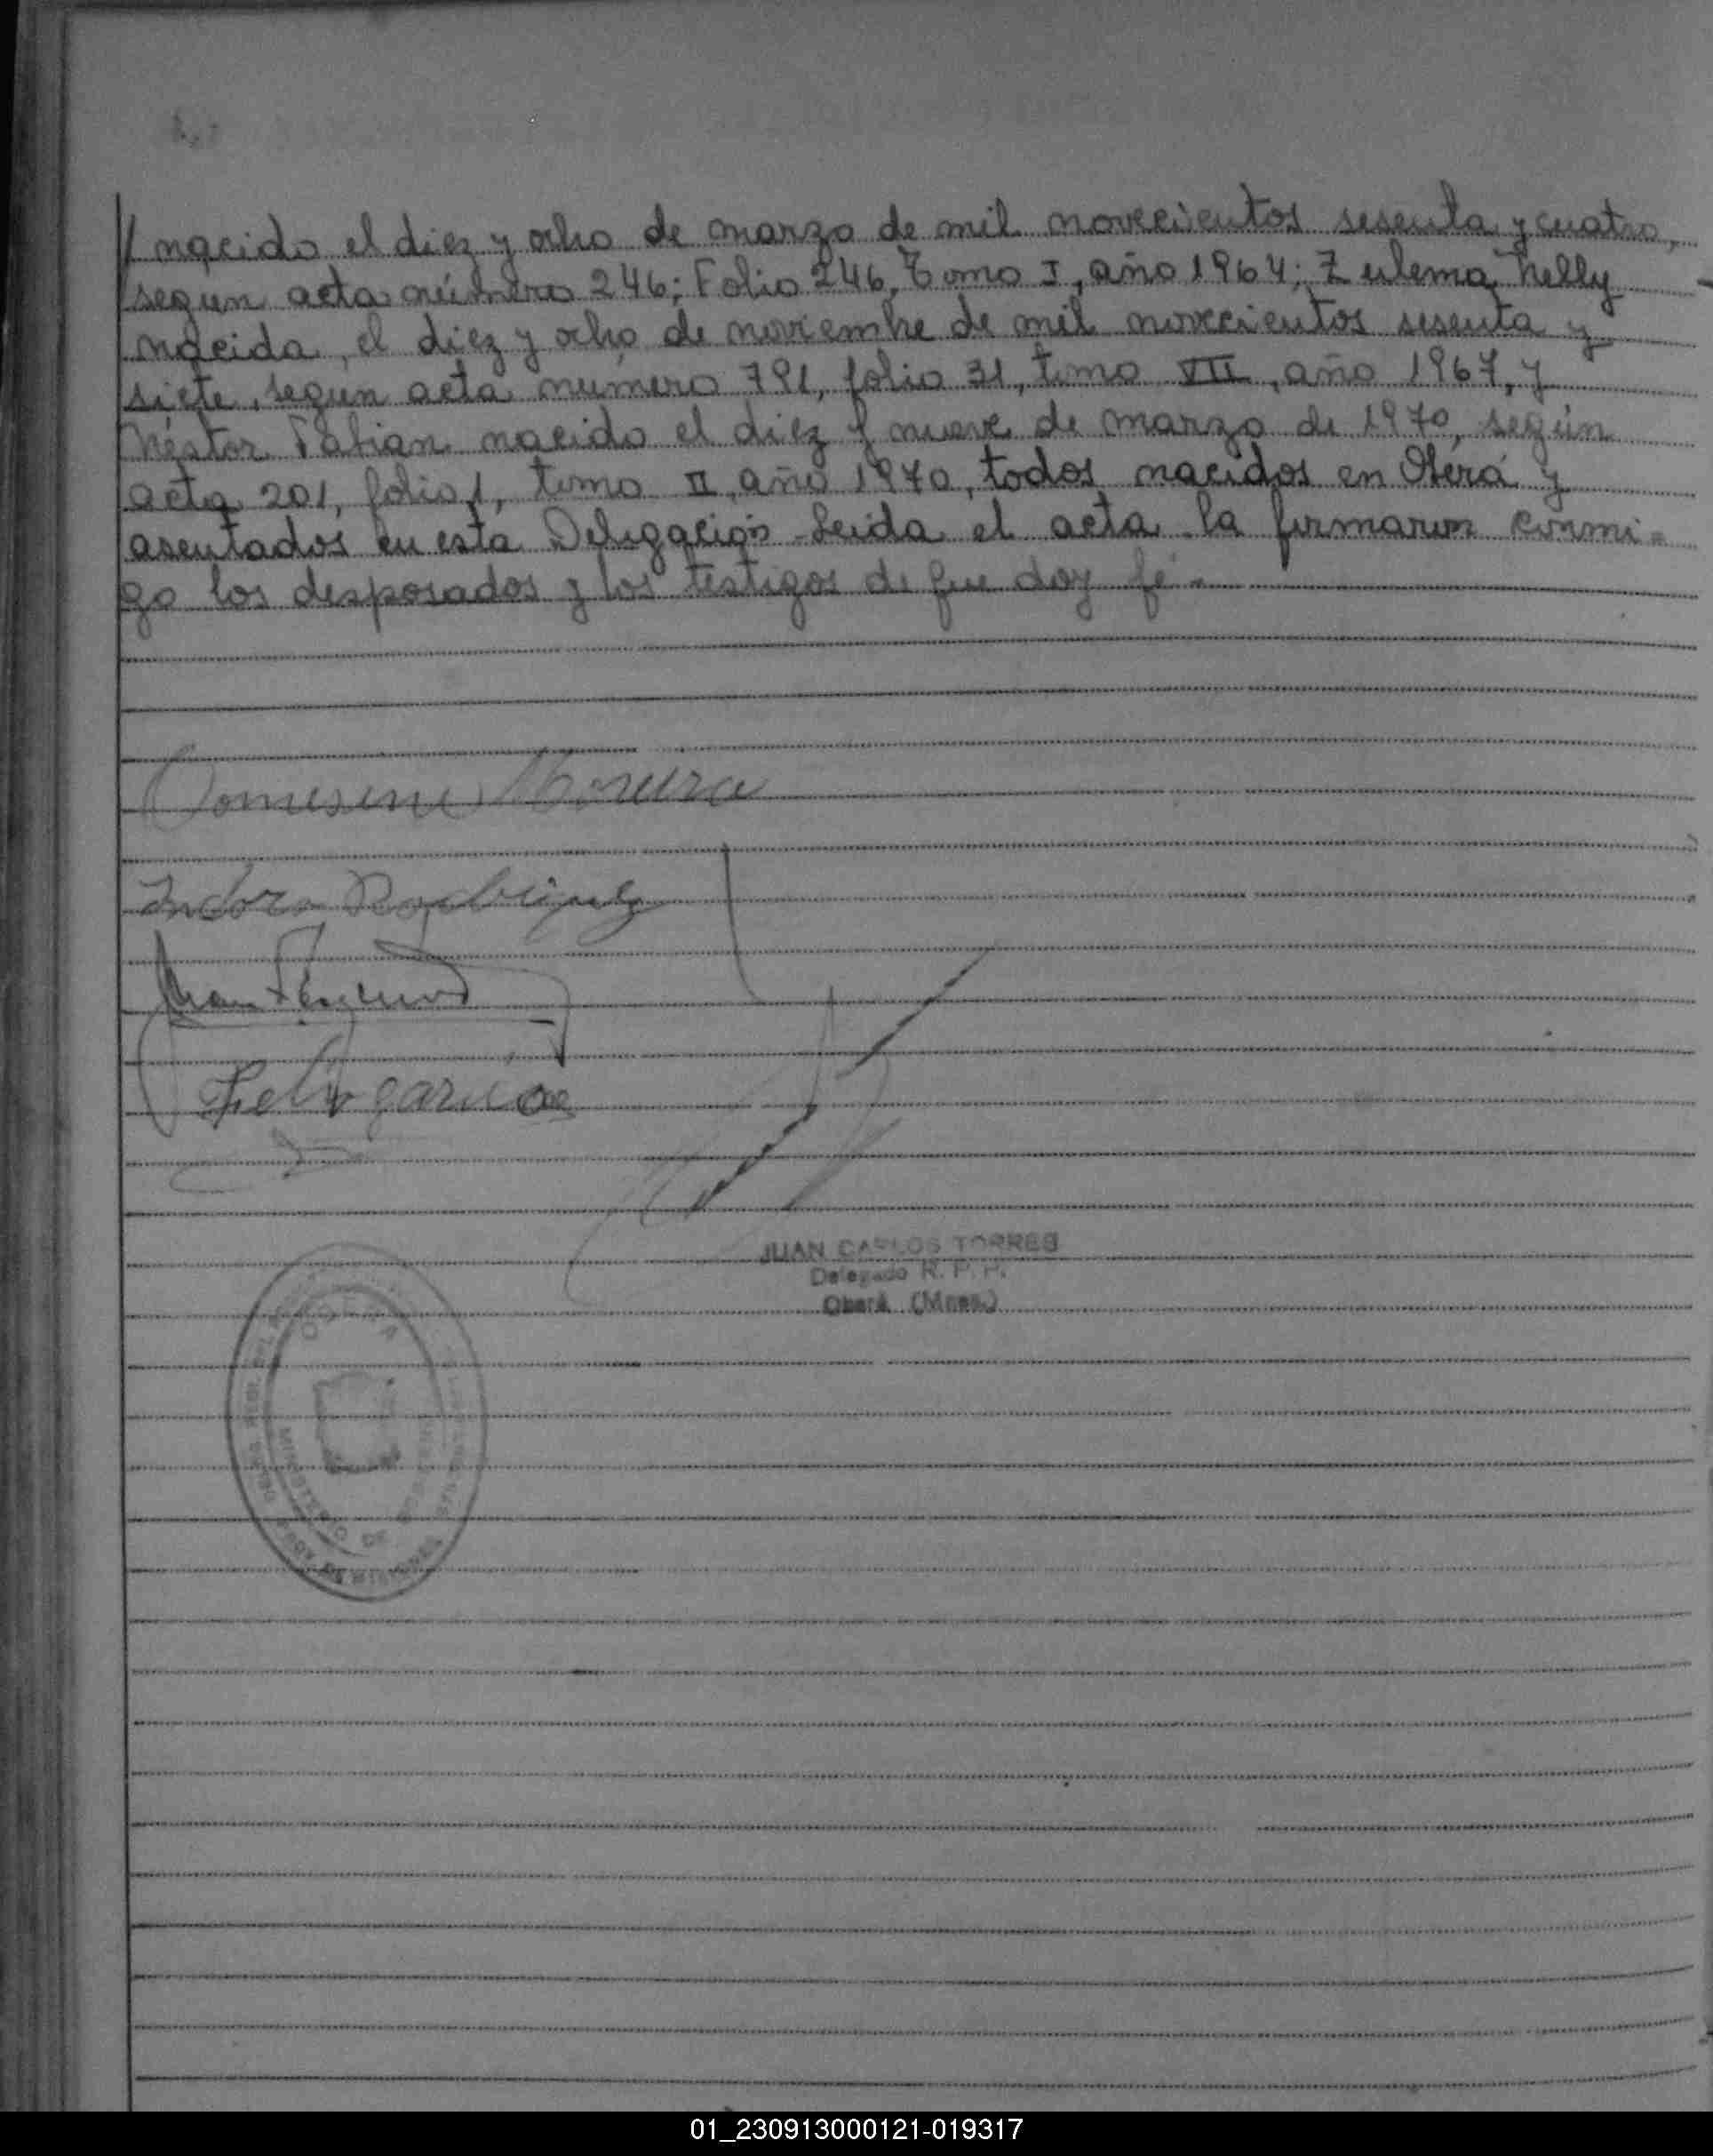 // nacido el diez y ocho de marzo de mil novecientos sesenta y cuatro,
segun acta número 246; Folio 246, Tomo I, año 1964; Zulema Nelly
nacida, el diez y ocho de noviembre de mil novecientos sesenta y
siete, según acta número 791, folio 31, tomo VIII, año 1967, y
Néstor Fabian nacido el diez y nueve de marzo de 1970, según
acta 201, folio 1, tomo II, año 1970, todos nacidos en Oberá y
asentados en esta Delegación - Leida el acta la firmaron conmi=
go los desposados y los testigos de que doy fé.-
Moreira
Rodriguez
Juan
Felix garcia
JUAN CARLOS TORRES
Delegado R. P. P.
Oberá (Mnes.)
MINISTERIO DE
MISIONES
01_230913000121-019317